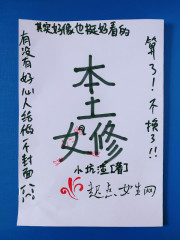 其实好像也挺好看的
算了！不换了！！
有没有好心人给做一个封面
本土
女修
小坑渣[著]
起点女生网